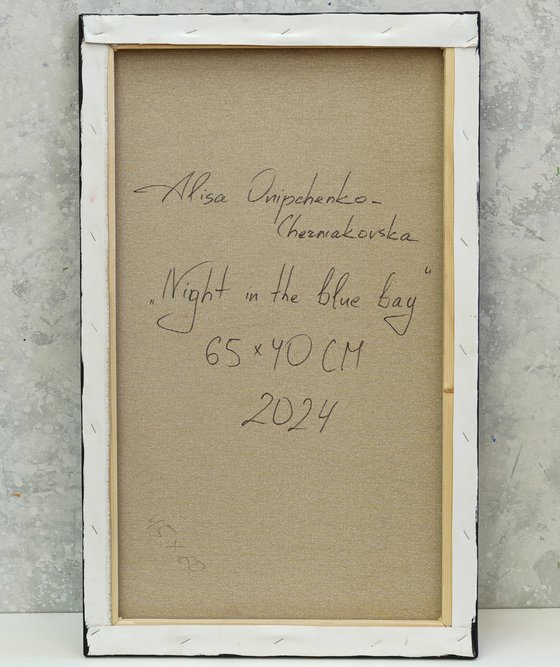 Alisa Onipchenko-
Cherniakovska
„Night in the blue bay“
65×40 CM
2024